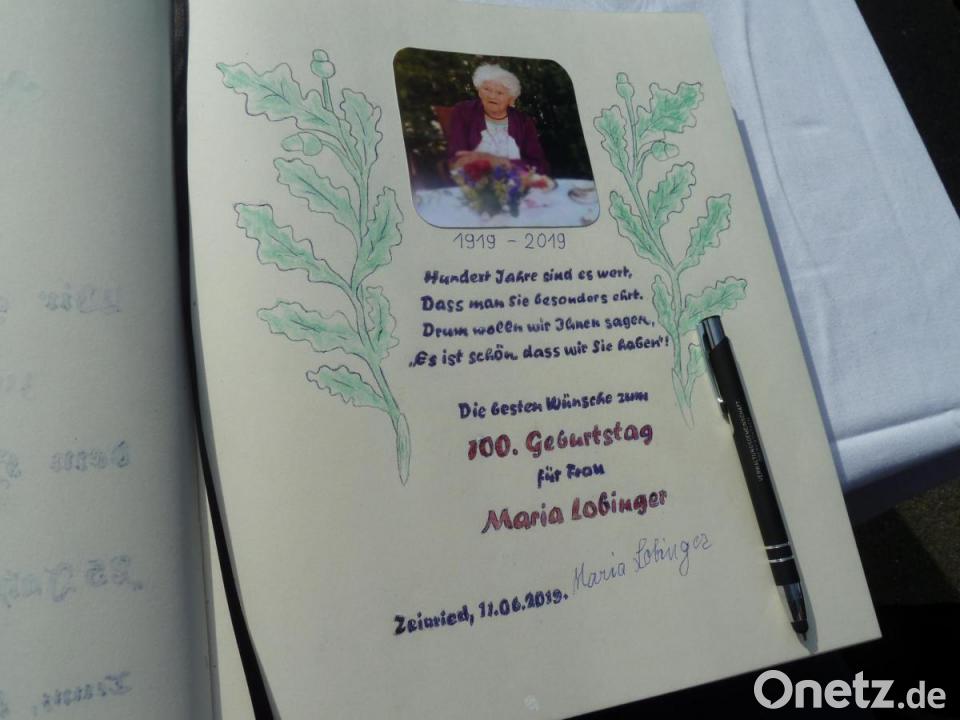 1919 - 2019
Hundert Jahre sind es wert,
Dass man Sie besonders ehrt.
Drum wollen wir Ihnen sagen,
„Es ist schön, dass wir Sie haben"!
Die besten Wünsche zum
100. Geburtstag
für Frau
Maria Lobinger
Maria Lobinger
Zeinried, 11.06.2019.
Onetz.de